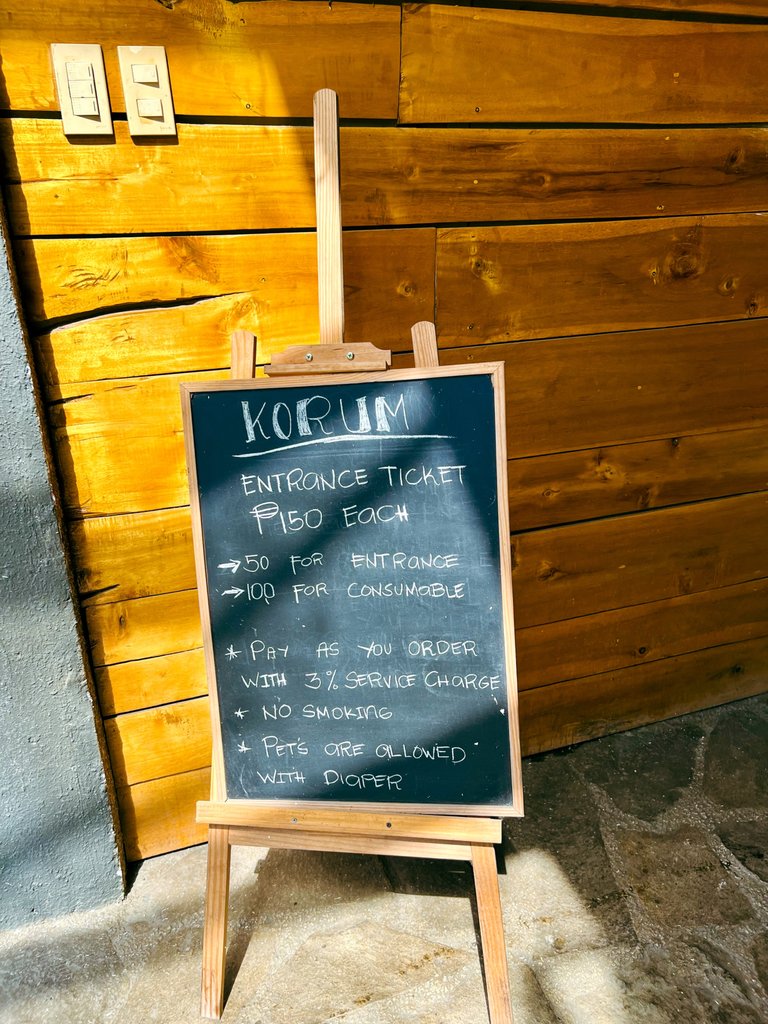 KORUM
ENTRANCE TICKET
₱150 EACH
→50 FOR ENTRANCE
→100 FOR CONSUMABLE
* PAY AS YOU ORDER
WITH 3% SERVICE CHARGE
* NO SMOKING
* PET'S ARE ALLOWED
WITH DIAPER